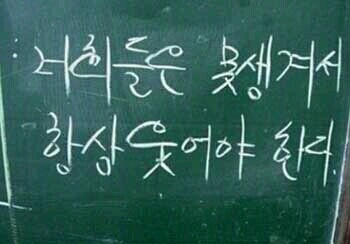 : 저희들은 못생겨서
항상 웃어야 한다.